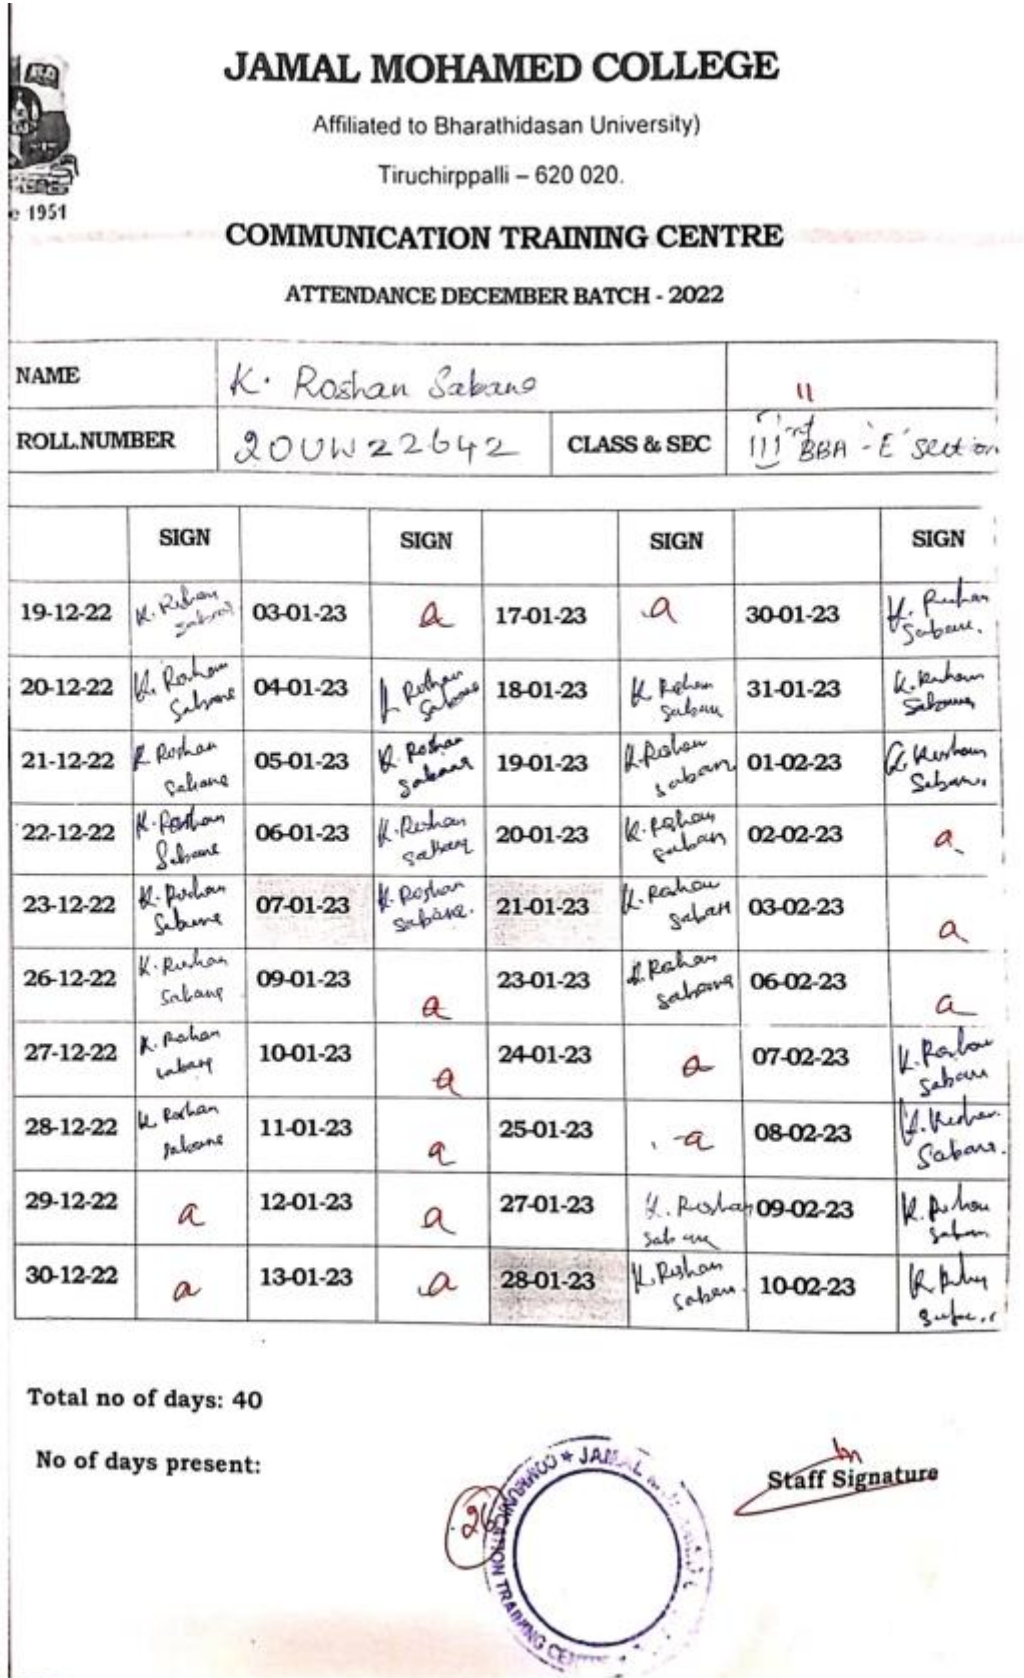 JAMAL MOHAMED COLLEGE
Affiliated to Bharathidasan University)
Tiruchirppalli – 620 020.
e 1951
COMMUNICATION TRAINING CENTRE
ATTENDANCE DECEMBER BATCH - 2022
NAME K. Roshan Sabane 11
ROLL.NUMBER 20UW22642 CLASS & SEC III rd BBA - 'E' Section
SIGN SIGN SIGN SIGN
19-12-22 K. Roshan Sabane 03-01-23 a 17-01-23 a 30-01-23 K. Roshan Sabane.
20-12-22 K. Roshan Sabane 04-01-23 K Roshan Sabane 18-01-23 K Roshan Saban 31-01-23 K. Roshan Sabane
21-12-22 K Roshan Sabane 05-01-23 K. Roshan Sabane 19-01-23 K. Roshan Saban 01-02-23 K. Roshan Saban.
22-12-22 K. Roshan Sabane 06-01-23 K. Roshan Sabane 20-01-23 K. Roshan Saban 02-02-23 a
23-12-22 K. Roshan Sabane 07-01-23 K. Roshan Sabane. 21-01-23 K. Roshan Saban 03-02-23 a
26-12-22 K. Roshan Sabane 09-01-23 a 23-01-23 K. Roshan Sabane 06-02-23 a
27-12-22 K. Roshan Sabane 10-01-23 a 24-01-23 a 07-02-23 K. Roshan Saban
28-12-22 K Roshan Sabane 11-01-23 a 25-01-23 a 08-02-23 K. Roshan Saban.
29-12-22 a 12-01-23 a 27-01-23 K. Roshan Sabane 09-02-23 K. Roshan Saban
30-12-22 a 13-01-23 a 28-01-23 K. Roshan Saban. 10-02-23 K
Total no of days: 40
No of days present: 26
Staff Signature
COMMUNICATION TRAINING CENTRE * JAMAL